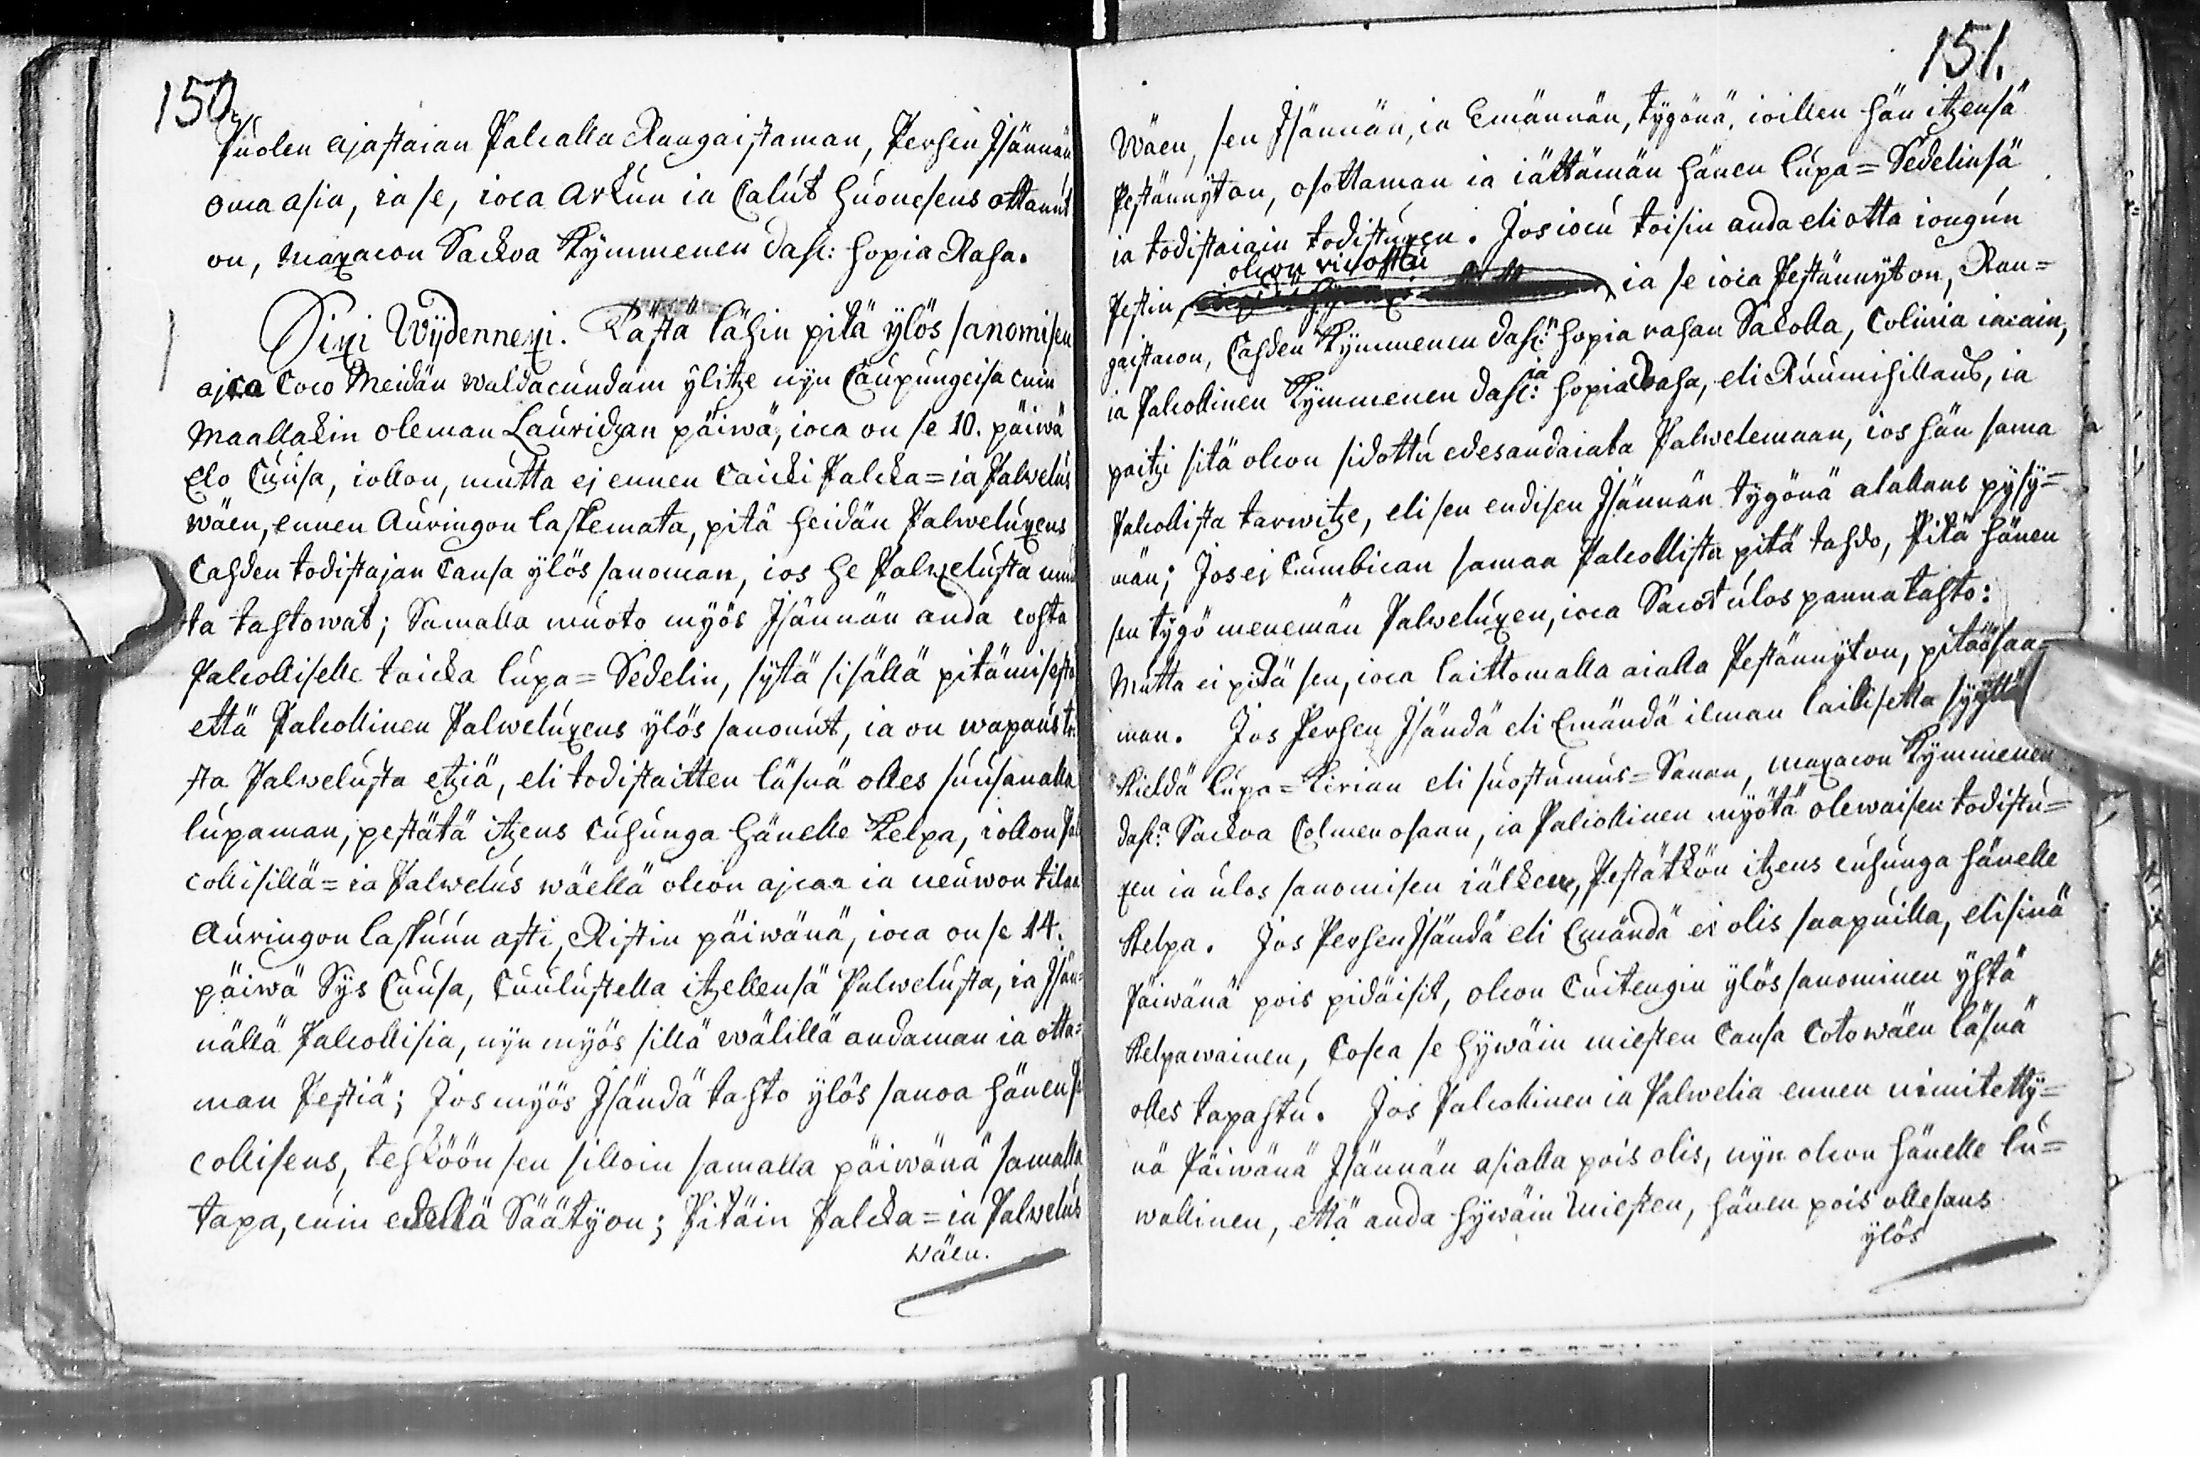 150.
Puolen ajastaian Palcalla Rangaistaman, Perhen Isännän
oma asia, ia se, ioca Arkun ia Calut huonesens ottanut
on, maxacon Sackoa Kymmenen dahl: hopia Raha.
Sixi Wijdennexi. Tästä lähin pitä ylös sanomisen
ajca Coco Meidän waldacundam ylitze nijn Caupungeisa cuin
Maallakin oleman Lauridzan päiwä, ioca on se 10. päiwä
Elo Cuusa, iollon, mutta ej ennen Caicki Palcka= ia Palwelus
wäen, ennen Auringon laskemata, pitä heidän Palweluxens
Cahden todistajan Cansa ylös sanoman, ios he Palwelusta muu
ta tahtowat; Samalla muoto myös Isännän anda cohta
Palcolliselle taicka lupa= Sedelin, sijtä sisällä pitämisestä
että Palcollinen Palweluxens ylös sanonut, ia on wapaus toi
sta Palwelusta etziä, eli todistaitten läsnä olles suusanalla
lupaman, pestätä itzens cuhunga hänelle Kelpa, iollon Pal
collisillä= ia Palwelus wäellä olcon ajcaa ia neuwon tilaa
Auringon laskuun asti, Ristin päiwänä, ioca on se 14.
päiwä Sys Cuusa, Cuulustella itzellensä Palwelusta, ia Isän=
nällä Palcollisia, nijn myös sillä wälillä andaman ia otta=
man Pestiä; Jos myös Isändä tahto ylös sanoa hänen P
collisens, tehköön sen silloin samalla päiwänä samalla
tapa, cuin edellä Säätty on; Pitäin Palcka= ia Palwelus
wäen.
151.
wäen, sen Isännän, ia Emännän, tygönä, ioillen hän itzensä
Pestännyt on, osottaman ia iättämän hänen lupa= Sedelinsä
ia todistaiain todistuxen. Jos iocu toisin anda eli otta iongun
olcon ricottu
Pestin, ia se ioca Pestännyt on, Ran=
gaistacon, Cahden Kymmenen dahl:n hopia rahan Sakolla, Colmia iacain,
ia Palcollinen Kymmenen dahl:ia hopia Raha, eli Ruumihillans, ia
paitzi sitä olcon sidottu edesandaiata Palwelemaan, ios hän sama
Palcollista tarwitze, eli sen endisen Isännän tygönä alallans pysy=
män; Jos ej Cumbican samaa Palcollista pitä tahdo, Pitä hänen
sen tygö menemän Palweluxen, ioca Sacot ulos panna tahto:
Mutta ei pidä sen, ioca laittomalla aialla Pestännyt on, pitää saa=
man. Jos Perhen Isändä eli Emändä ilman laillisetta syyttä
Kieldä lupa= Kirian eli suostumus= Sanan, maxacon Kymmenen
dahl:a Sackoa Colmen osaan, ia Palcollinen myötä olewaisen todistu=
xen ia ulos sanomisen iälken, Pestätkön itzens cuhunga hänelle
Kelpa. Jos Perhen Isändä eli Emändä ei olis saapuilla, eli sinä
Päiwänä pois pidäisit, olcon Cuitengin ylös sanominen yhtä
Kelpawainen, Cosca se hywäin miesten Cansa Cotowäen läsnä
olles tapahtu. Jos Palcollinen ia Palwelia ennen nimitetty=
nä Päiwänä Isännän asialla pois olis, nijn olcon hänelle lu=
wallinen, että anda hywäin Miesten, hänen pois ollesans
ylös